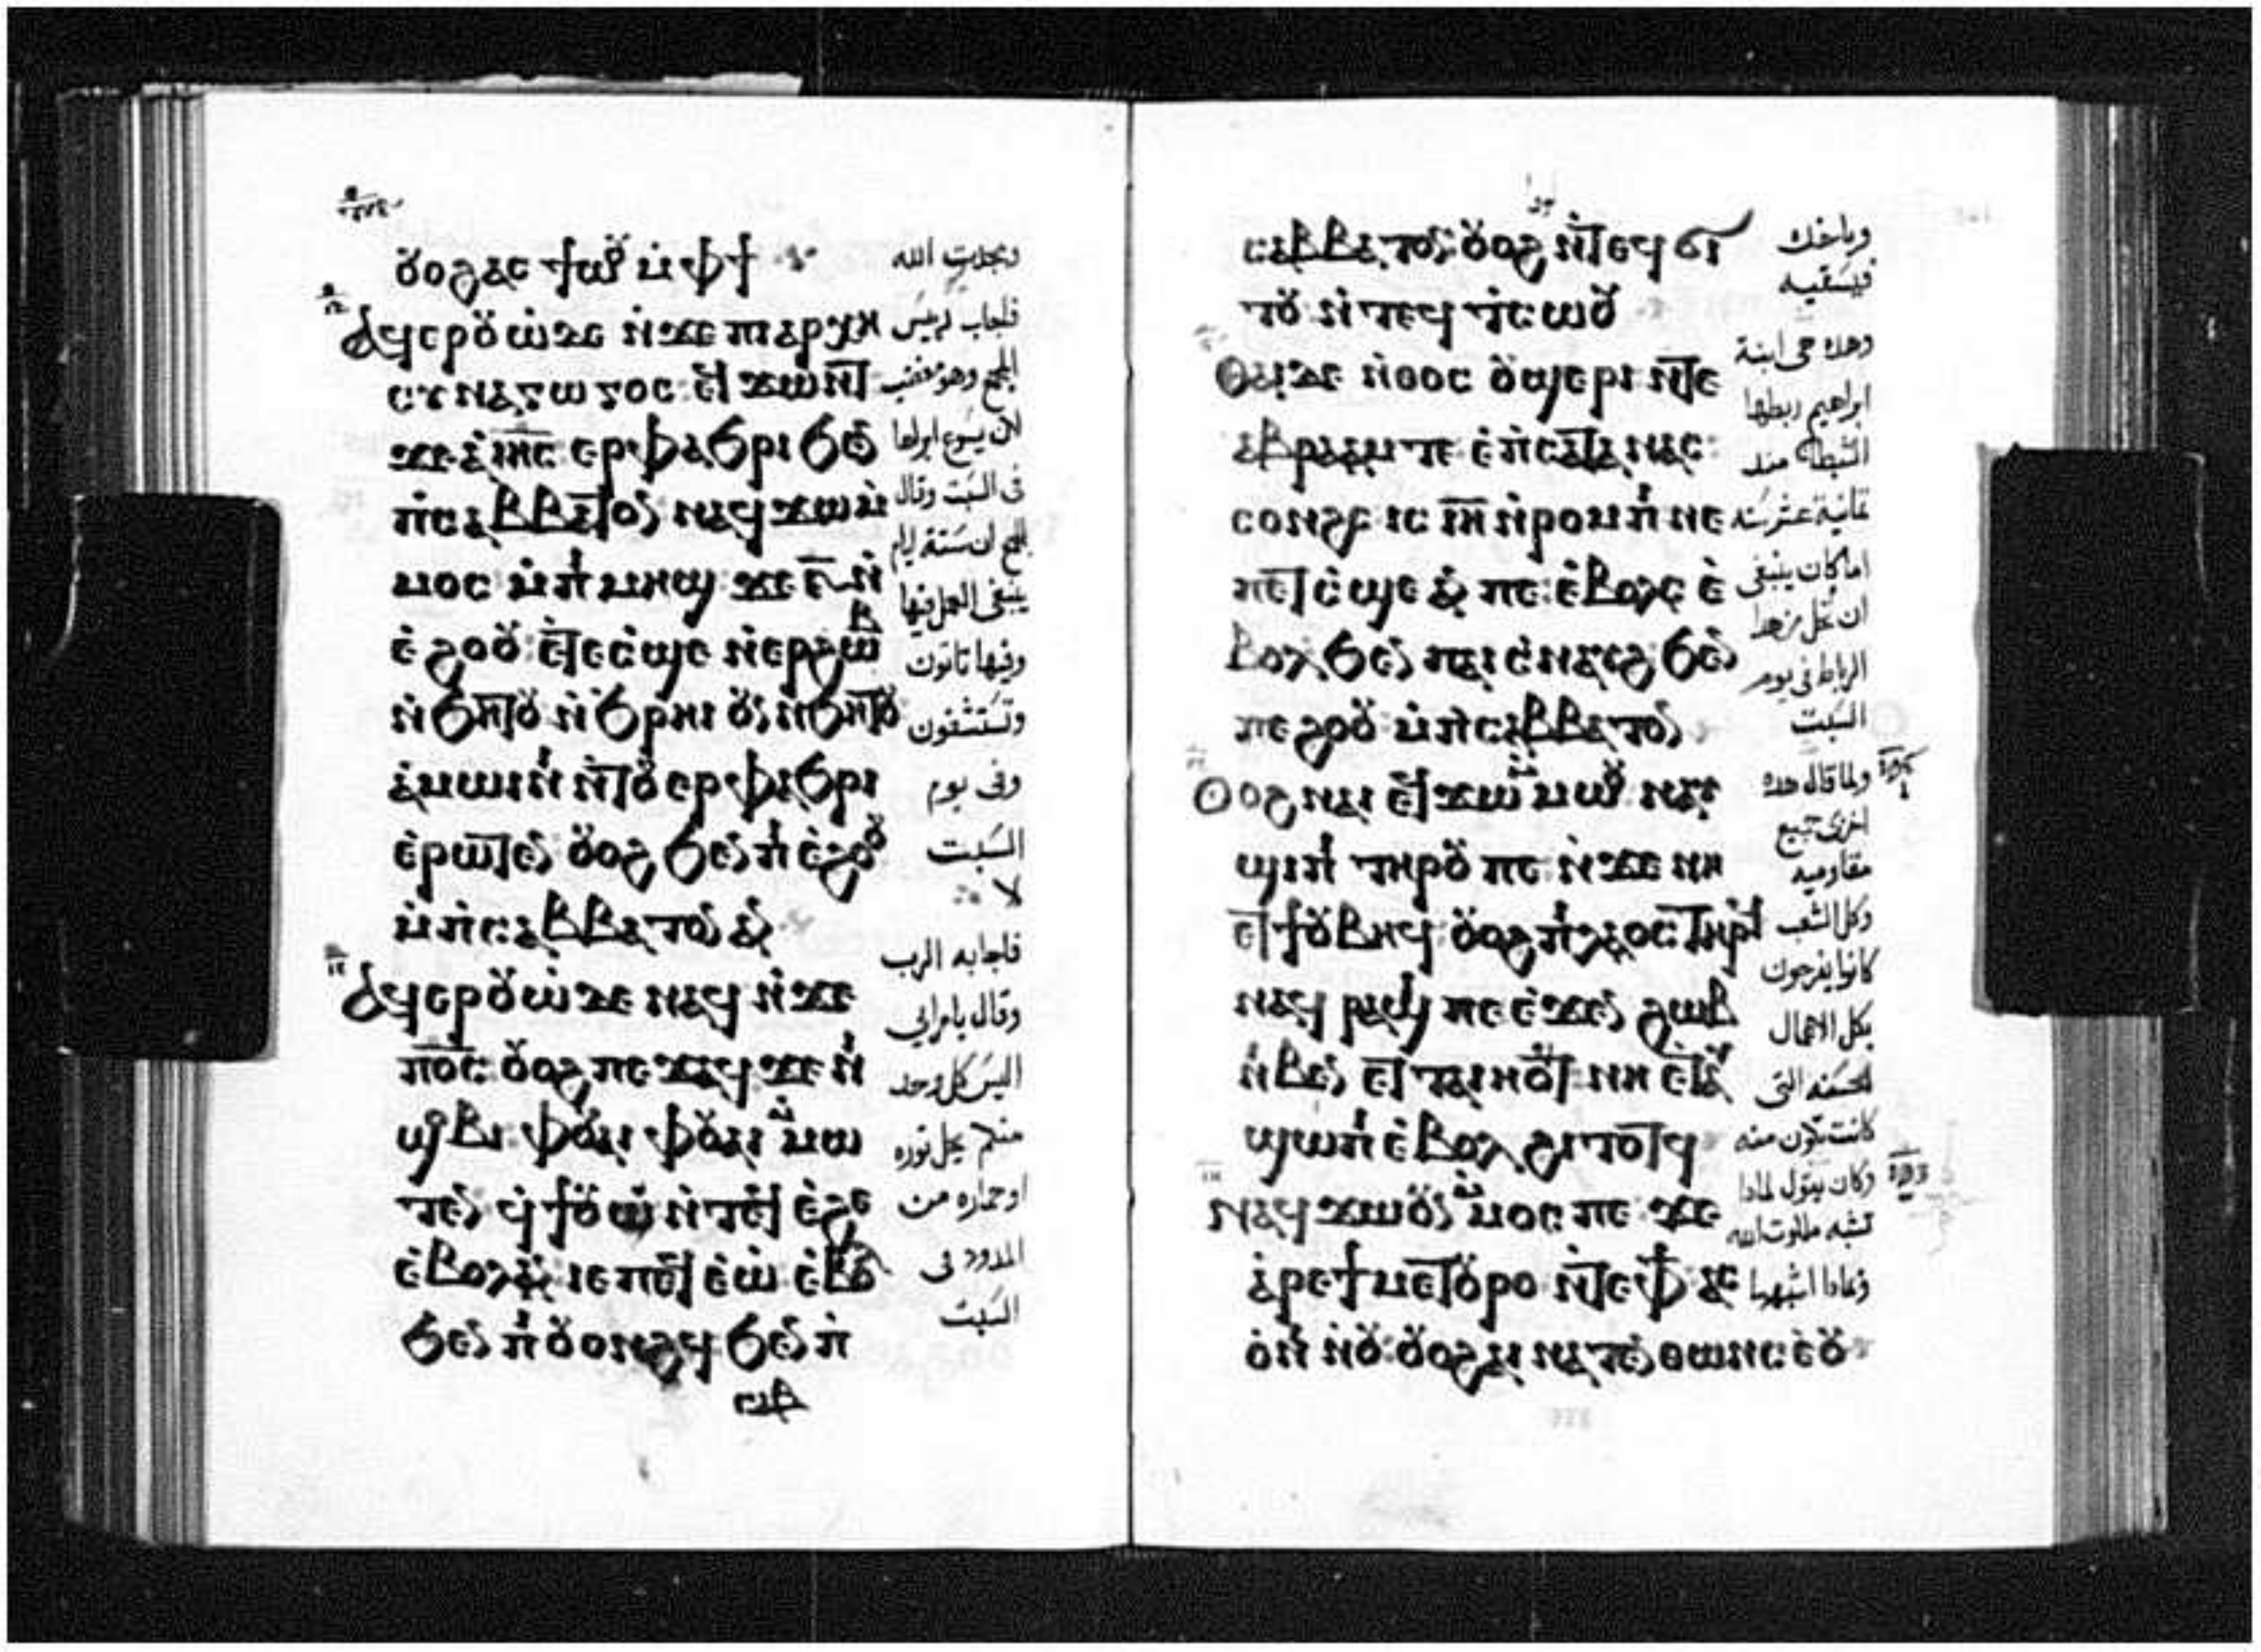 ⲟⲩⲟϩ ⲁⲥϯⲱⲟⲩ ⲙ̀ⲫϯ
ⲁϥⲉⲣⲟⲩⲱ̀ ⲇⲉ ⲛ̀ϫⲉ ⲡⲓⲁⲣⲭⲏ
ⲥⲩⲛⲁⲅⲱⲅⲟⲥ ⲉϥϫⲱⲛⲧ
ϫⲉ ⲁ̀ ⲓⲏⲥ ⲉⲣⲫⲁϧⲣⲓ ϧⲉⲛ
ⲡ̀ⲥⲁⲃⲃⲁⲧⲟⲛ ⲛⲁϥϫⲱ ⲙ̀
ⲙⲟⲥ ⲙ̀ⲡⲓⲙⲏϣ ϫⲉ ⲋ̅ ⲛ̀
ⲉ̀ϩⲟⲟⲩ ⲉ̀ⲧⲉⲥ̀ϣⲉ ⲛ̀ⲉⲣϩⲱⲃ
ⲛ̀ϧⲏⲧⲟⲩ ⲛ̀ϧⲣⲏⲓ ⲟⲩⲛ ⲛ̀ϧⲏⲧⲟⲩ
ⲁ̀ⲙⲱⲓⲛⲓ ⲛ̀ⲧⲟⲩⲉⲣⲫⲁϧⲣⲓ
ⲉ̀ⲣⲱⲧⲉⲛ ⲟⲩⲟϩ ϧⲉⲛ ⲡⲓⲉ̀ϩⲟⲟⲩ
ⲙ̀ⲡ̀ⲥⲁⲃⲃⲁⲧⲟⲛ ⲁⲛ
ⲁϥⲉⲣⲟⲩⲱ̀ ⲇⲉ ⲛⲁϥ ⲛ̀ϫⲉ
ⲡⲟ̅ⲥ̅ ⲟⲩⲟϩ ⲡⲉϫⲁϥ ϫⲉ ⲛⲓ
ϣⲟⲃⲓ ⲫⲟⲩⲁⲓ ⲫⲟⲩⲁⲓ ⲙ̀ⲙⲱ
ⲧⲉⲛ ϥ̀ϯⲟⲩⲱ ⲛ̀ⲧⲉϥ ⲉ̀ϩⲉ
ⲉ̀ⲃⲟⲗ ⲁⲛ ⲓⲉ ⲡⲉϥⲉ̀ⲱ̀ ⲉ̀ⲃⲟⲗ
ϧⲉⲛ ⲡⲓⲟⲩⲟⲛϩϥ ϧⲉⲛ ⲡ̀
ⲥⲁⲃ
ومجدت الله
فاجاب رئيس
المجمع وهو مغضب
لان يسوع ابراها
فى السبت وقال
للجمع ان ستة ايام
ينبغى العمل فيها
وفيها تاتون
وتستشفون
وفى يوم
السبت
لا
فاجابه الرب
وقال يا مرايى
اليس كل واحد
منكم يحل ثوره
او حماره من
المدود فى
السبت
ⲥⲁⲃⲃⲁⲧⲟⲛ ⲟⲩⲟϩ ⲛ̀ⲧⲉϥϭⲓ
ⲧⲟⲩ ⲛ̀ⲧⲉϥⲧ̀ⲥⲱⲟⲩ
ⲑⲁⲓ ⲇⲉ ⲛ̀ⲑⲟⲥ ⲟⲩϣⲉⲣⲓ ⲛ̀ⲧⲉ
ⲁⲃⲣⲁⲁⲙ ⲧⲉ ⲉ̀ⲡⲥⲁⲧⲁⲛⲁⲥ
ⲥⲟⲛϩⲥ ⲓⲥ ⲓ̅ⲏ̅ ⲛ̀ⲣⲟⲙⲡⲓ ⲛⲉ
ⲡⲉⲧⲥ̀ϣⲉ ⲁⲛ ⲡⲉ ⲉ̀ⲃⲟⲗⲥ ⲉ̀
ⲃⲟⲗ ϧⲉⲛ ⲡⲁⲓⲥⲛⲁⲩϩ ϧⲉⲛ
ⲡⲉϩⲟⲟⲩ ⲙ̀ⲡ̀ⲥⲁⲃⲃⲁⲧⲟⲛ
ⲟⲩⲟϩ ⲛⲁⲓ ⲉϥϫⲱ ⲙ̀ⲙⲱⲟⲩ ⲛⲁⲩ
ϣⲓⲡⲓ ⲧⲏⲣⲟⲩ ⲡⲉ ⲛ̀ϫⲉ ⲛⲏ
ⲉⲧϯⲟⲩⲃⲏϥ ⲟⲩⲟϩ ⲡⲓⲗⲁⲟⲥ ⲧⲏⲣϥ
ⲛⲁϥⲣⲁϣⲓ ⲡⲉ ⲉ̀ϫⲉⲛ ϩⲱⲃ
ⲛⲓⲃⲉⲛ ⲉⲧⲧⲁⲓⲏⲟⲩⲧ ⲛⲏ ⲉ̀ⲧⲁⲩ
ϣⲱⲡⲓ ⲉ̀ⲃⲟⲗϩⲓⲧⲟⲧϥ
ⲛⲁϥϫⲱ ⲟⲩⲛ ⲙ̀ⲙⲟⲥ ⲡⲉ ϫⲉ
ⲁ̀ⲣⲉ ϯⲙⲉⲧⲟⲩⲣⲟ ⲛ̀ⲧⲉ ⲫϯ ⲁⲥ
ⲟ̀ⲛⲓ ⲛ̀ⲟⲩ ⲟⲩⲟϩ ⲁⲓⲛⲁⲧⲉⲛⲑⲱⲛⲥ ⲉ̀ⲟⲩ
وياخذه
فيسقيه
وهذه هى ابنة
ابراهيم ربطها
الشيطان منذ
ثمانية عشر سنة
اما كان ينبغى
ان تحل من هذا
الرباط فى يوم
السبت
ولما قال هذه
اخزى جميع
مقاوميه
وكل الشعب
كانوا يفرحون
بكل الاعمال
الحسنه التى
كانت تكون منه
وكان يقول لماذا
تشبه ملكوت الله
وبماذا اشبهها